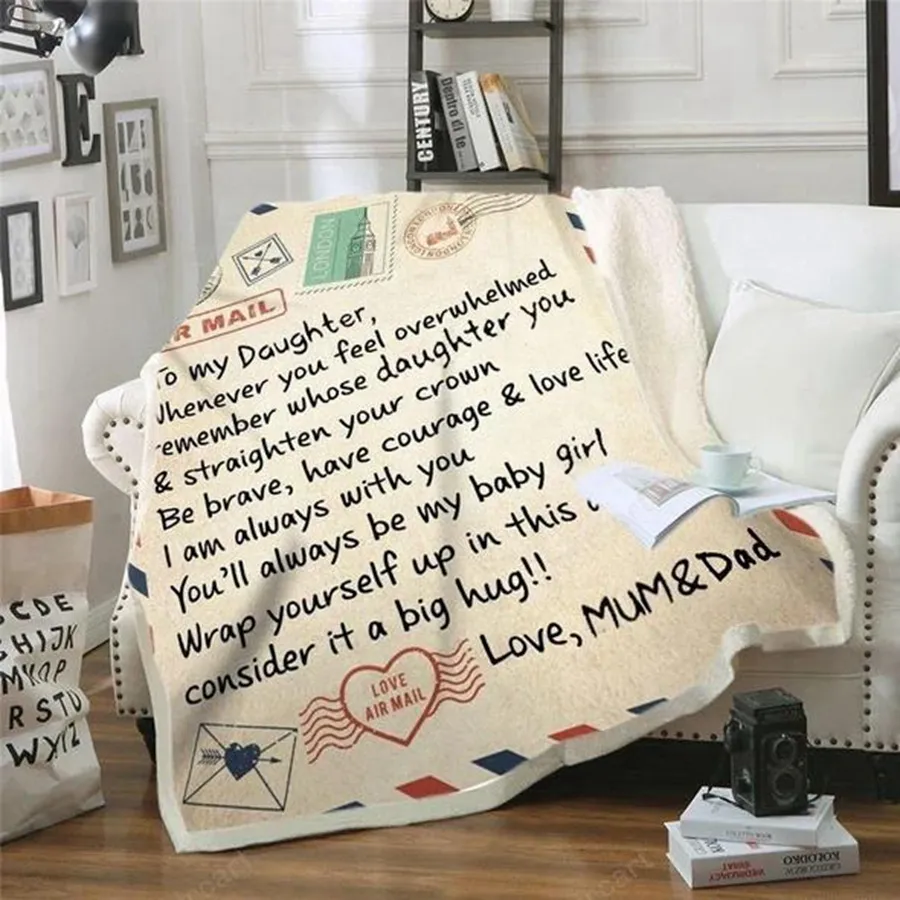 E
CENTURY
Dentro di te
LONDON
R MAIL
To my Daughter,
Whenever you feel overwhelmed
remember whose daughter you
& straighten your crown
Be brave, have courage & love life
I am always with you
You'll always be my baby girl
Wrap yourself up in this
consider it a big hug!!
Love, MUM&Dad
LOVE
AIR MAIL
CDE
GHIJK
MNOP
RSTU
WXYZ
KOROLKO